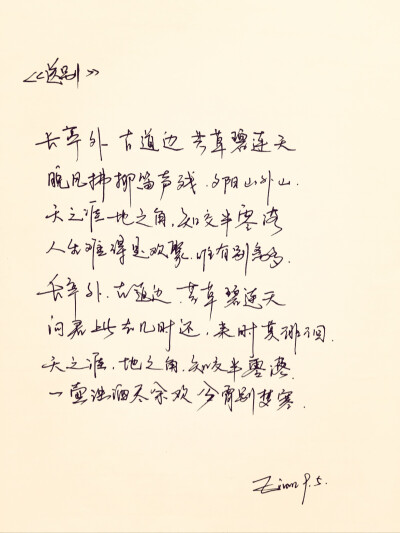 《送别》
长亭外 古道边 芳草碧连天
晚风拂柳笛声残 夕阳山外山
天之涯 地之角 知交半零落
人生难得是欢聚 惟有别离多
长亭外 古道边 芳草碧连天
问君此去几时还, 来时莫徘徊
天之涯, 地之角 知交半零落
一壶浊酒尽余欢 今宵别梦寒
9.5.